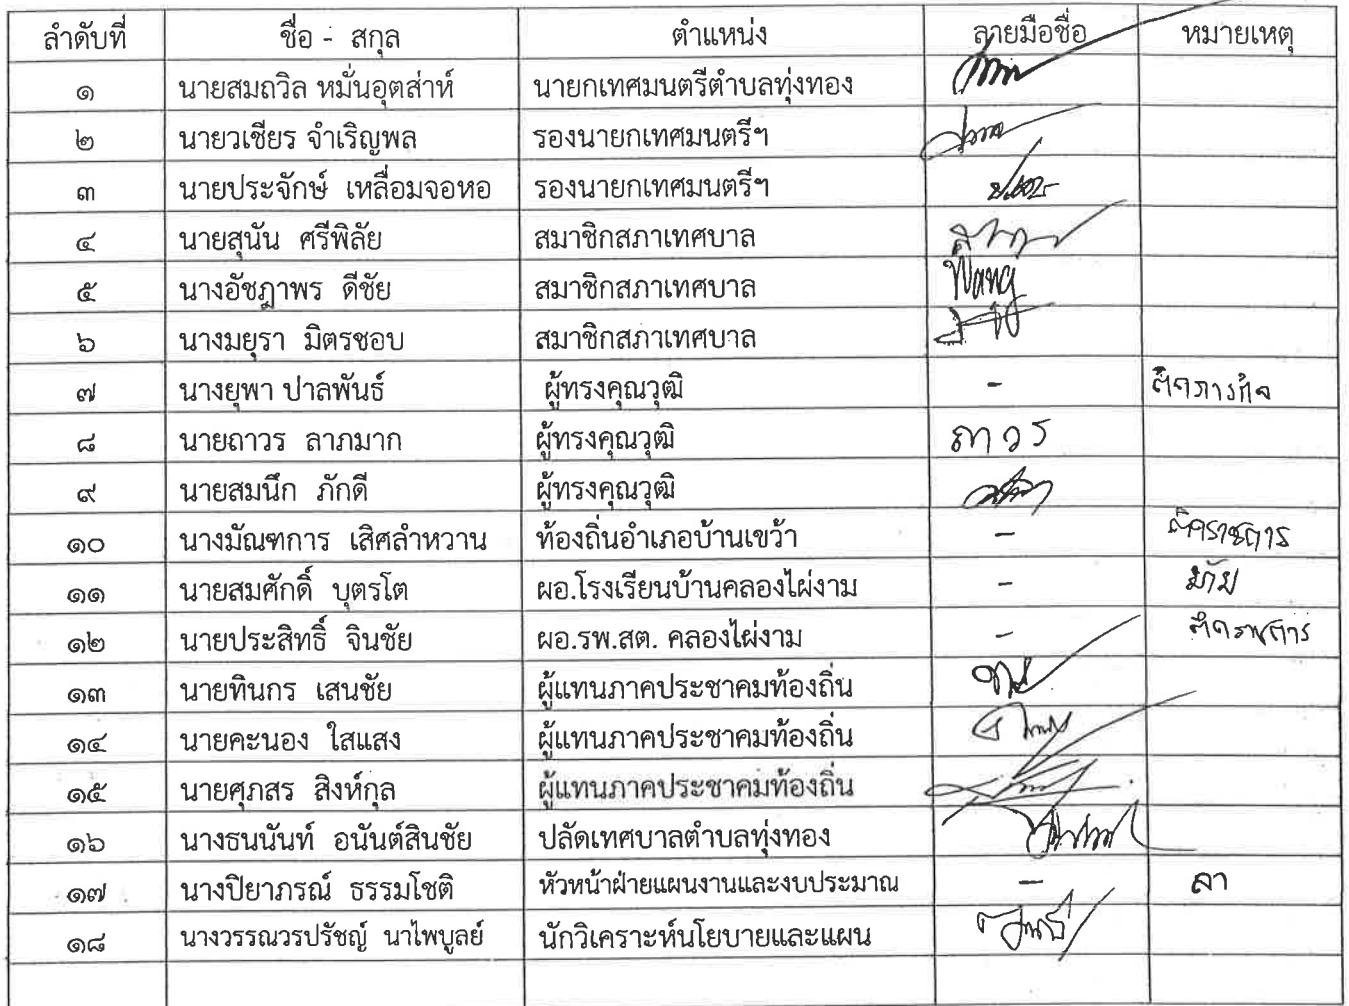 ลำดับที่ ชื่อ - สกุล ตำแหน่ง ลายมือชื่อ หมายเหตุ
๑ นายสมถวิล หมั่นอุตส่าห์ นายกเทศมนตรีตำบลทุ่งทอง
๒ นายวเชียร จำเริญพล รองนายกเทศมนตรีฯ
๓ นายประจักษ์ เหลื่อมจอหอ รองนายกเทศมนตรีฯ
๔ นายสุนัน ศรีพิลัย สมาชิกสภาเทศบาล
๕ นางอัชฎาพร ดีชัย สมาชิกสภาเทศบาล
๖ นางมยุรา มิตรชอบ สมาชิกสภาเทศบาล
๗ นางยุพา ปาลพันธ์ ผู้ทรงคุณวุฒิ - ติดภารกิจ
๘ นายถาวร ลาภมาก ผู้ทรงคุณวุฒิ ถาวร
๙ นายสมนึก ภักดี ผู้ทรงคุณวุฒิ
๑๐ นางมัณฑการ เสิศลำหวาน ท้องถิ่นอำเภอบ้านเขว้า - ติดราชการ
๑๑ นายสมศักดิ์ บุตรโต ผอ.โรงเรียนบ้านคลองไผ่งาม -
๑๒ นายประสิทธิ์ จินชัย ผอ.รพ.สต. คลองไผ่งาม - ติดราชการ
๑๓ นายทินกร เสนชัย ผู้แทนภาคประชาคมท้องถิ่น
๑๔ นายคะนอง ใสแสง ผู้แทนภาคประชาคมท้องถิ่น
๑๕ นายศุภสร สิงห์กุล ผู้แทนภาคประชาคมท้องถิ่น
๑๖ นางธนนันท์ อนันต์สินชัย ปลัดเทศบาลตำบลทุ่งทอง
๑๗ นางปิยาภรณ์ ธรรมโชติ หัวหน้าฝ่ายแผนงานและงบประมาณ - ลา
๑๘ นางวรรณวรปรัชญ์ นาไพบูลย์ นักวิเคราะห์นโยบายและแผน